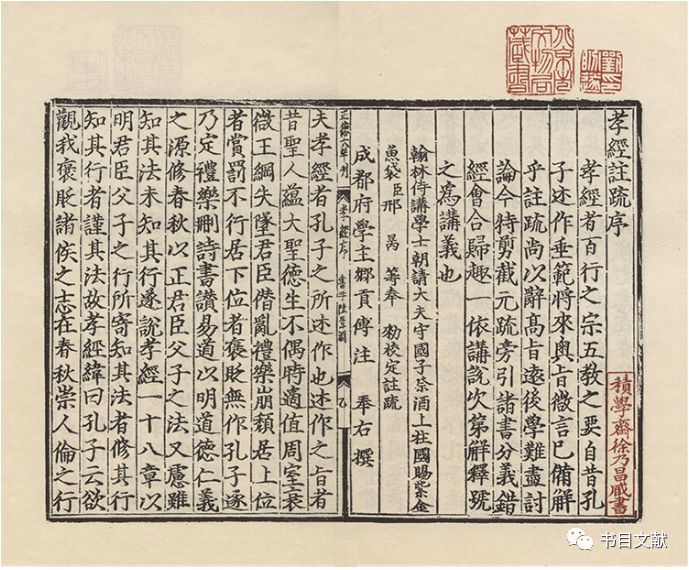 孝經註疏序
孝經者百行之宗五教之要自昔孔
子述作垂範將來奧旨微言已備解
乎註疏尚以辭高旨遠後學難盡討
論今特剪截元疏旁引諸書分義錯
經會合歸趣一依講說次第解釋號
之爲講義也
翰林侍講學士朝請大夫守國子祭酒上柱國賜紫金
魚袋臣邢昺等奉 勑校定註疏
成都府學主鄉貢傅注 奉右 撰
正德六年刊
孝經序
夫孝經者孔子之所述作也述作之旨者
昔聖人蘊大聖德生不偶時適值周室衰
微王綱失墜君臣僭亂禮樂崩頽居上位
者賞罰不行居下位者褒貶無作孔子遂
乃定禮樂刪詩書讚易道以明道德仁義
之源修春秋以正君臣父子之法又慮雖
知其法未知其行遂說孝經一十八章以
明君臣父子之行所寄知其法者修其行
知其行者謹其法故孝經緯曰孔子云欲
觀我褒貶諸侯之志在春秋崇人倫之行
積學齋徐乃昌藏書
书目文献